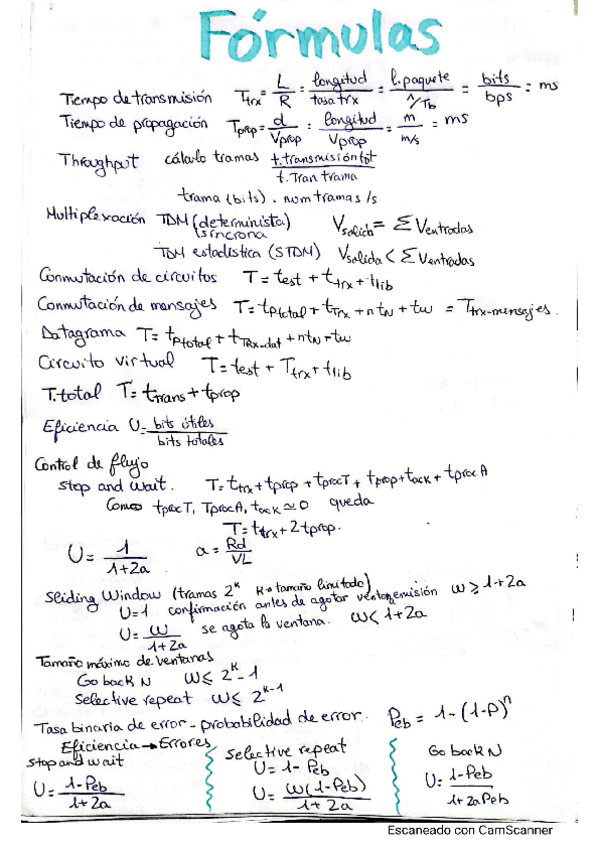 Fórmulas
Tiempo de transmisión Ttrx = L/R = longitud/tasa trx = l. paquete/1/Tb = bits/bps = ms
Tiempo de propagación Tprop = d/Vprop = longitud/Vprop = m/m/s = ms
Throughput cálculo tramas t. transmisión tot/t. Tran trama
trama (bits) . num tramas /s
Multiplexación TDM (determinista) Vsalida = Σ Ventradas
síncrona
TDM estadística (STDM) Vsalida < Σ Ventradas
Conmutación de circuitos T = test + ttrx + tlib
Conmutación de mensajes T = tptotal + ttrx + ntN + tw = Ttrx-mensajes.
Datagrama T = tptotal + tTRx-dat + ntN + tw
Circuito virtual T = test + Ttrx + tlib
T. total T = ttrans + tprop
Eficiencia U = bits útiles/bits totales
Control de flujo
stop and wait. T = ttrx + tprop + tprocT + tprop + tack + tprocA
Como tprocT, TprocA, tack ≃ 0 queda
T = ttrx + 2tprop.
U = 1/1+2a a = Rd/VL
Sliding Window (tramas 2^k k → tamaño limitado)
U=1 confirmación antes de agotar ventana emisión ω ≥ 1+2a
U = ω/1+2a se agota la ventana. ω < 1+2a
Tamaño máximo de ventanas
Go back N ω ≤ 2^k - 1
Selective repeat ω ≤ 2^k-1
Tasa binaria de error - probabilidad de error. Peb = 1 - (1-P)^n
Eficiencia → Errores
stop and wait
U = 1-Peb/1+2a
Selective repeat
U = 1 - Peb
U = ω(1-Peb)/1+2a
Go back N
U = 1-Peb/1+2aPeb
Escaneado con CamScanner